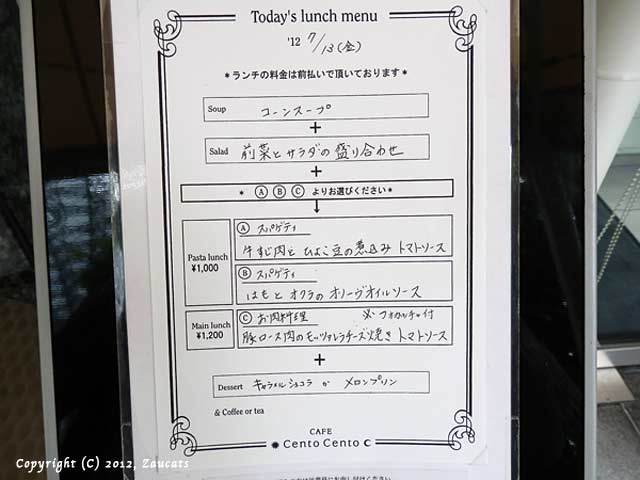 Today's lunch menu
'12 7/13(金)
*ランチの料金は前払いで頂いております*
Soup コーンスープ
+
Salad 前菜とサラダの盛り合わせ
+
* Ⓐ Ⓑ Ⓒ よりお選びください*
Pasta lunch
¥1,000
Ⓐ スパゲティ
牛すじ肉と ひよこ豆の煮込み トマトソース
Ⓑ スパゲティ
はもと オクラの オリーヴオイルソース
Main lunch
¥1,200
Ⓒ お肉料理 ※フォカッチャ付
豚ロース肉のモッツァレラチーズ焼き トマトソース
+
Dessert キャラメルショコラ か メロンプリン
& Coffee or tea
CAFE
Cento Cento
Copyright (C) 2012, Zaucats